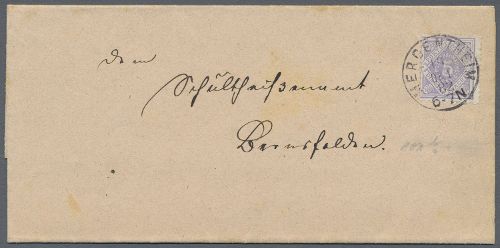 dem
Schultheißenamt
Bernsfelden.
MERGENTHEIM
6-7N